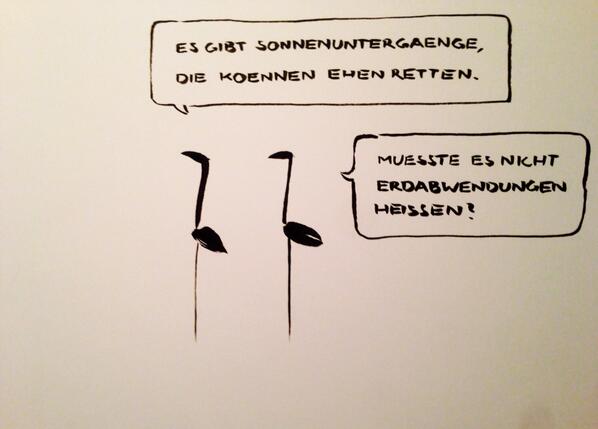 ES GIBT SONNENUNTERGAENGE,
DIE KOENNEN EHEN RETTEN.
MUESSTE ES NICHT
ERDABWENDUNGEN
HEISSEN?